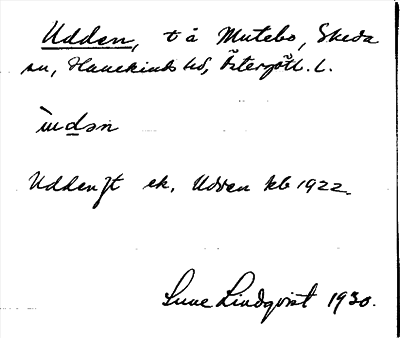 Udden, t å Mutebo, Skeda
sn, Hanekinds hd, Östergötl. l.
ùdən
Udden ft ek. Udden kb 1922
Sune Lindqvist 1930.